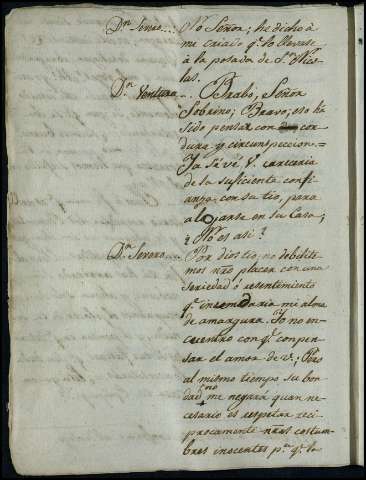 Dn. Severo... No Señor; he dicho à
mi criado qe. lo llevase
à la posada de Sn. Nico-
las.
Dn. Ventura... Brabo, Señor
Sobrino; Bravo; eso ha
sido pensar con cor-
dura y circunspeccion.=
Ya se vé V. careceria
de la suficiente confi-
anza con su tio, para
alojarse en su Casa;
¿No es asi?
Dn. Severo... Por dios tio, no debilite-
mos nño placer con una
seriedad ó resentimiento
qe. inundaria mi alma
de amargura. Yo no en-
cuentro con qe. conpen-
sar el amor de V.; Pero
al mismo tiempo su bon-
dad no me negará quan ne-
cesario es respetar reci-
procamente nñas costum-
bres inocentes pa. qe. la